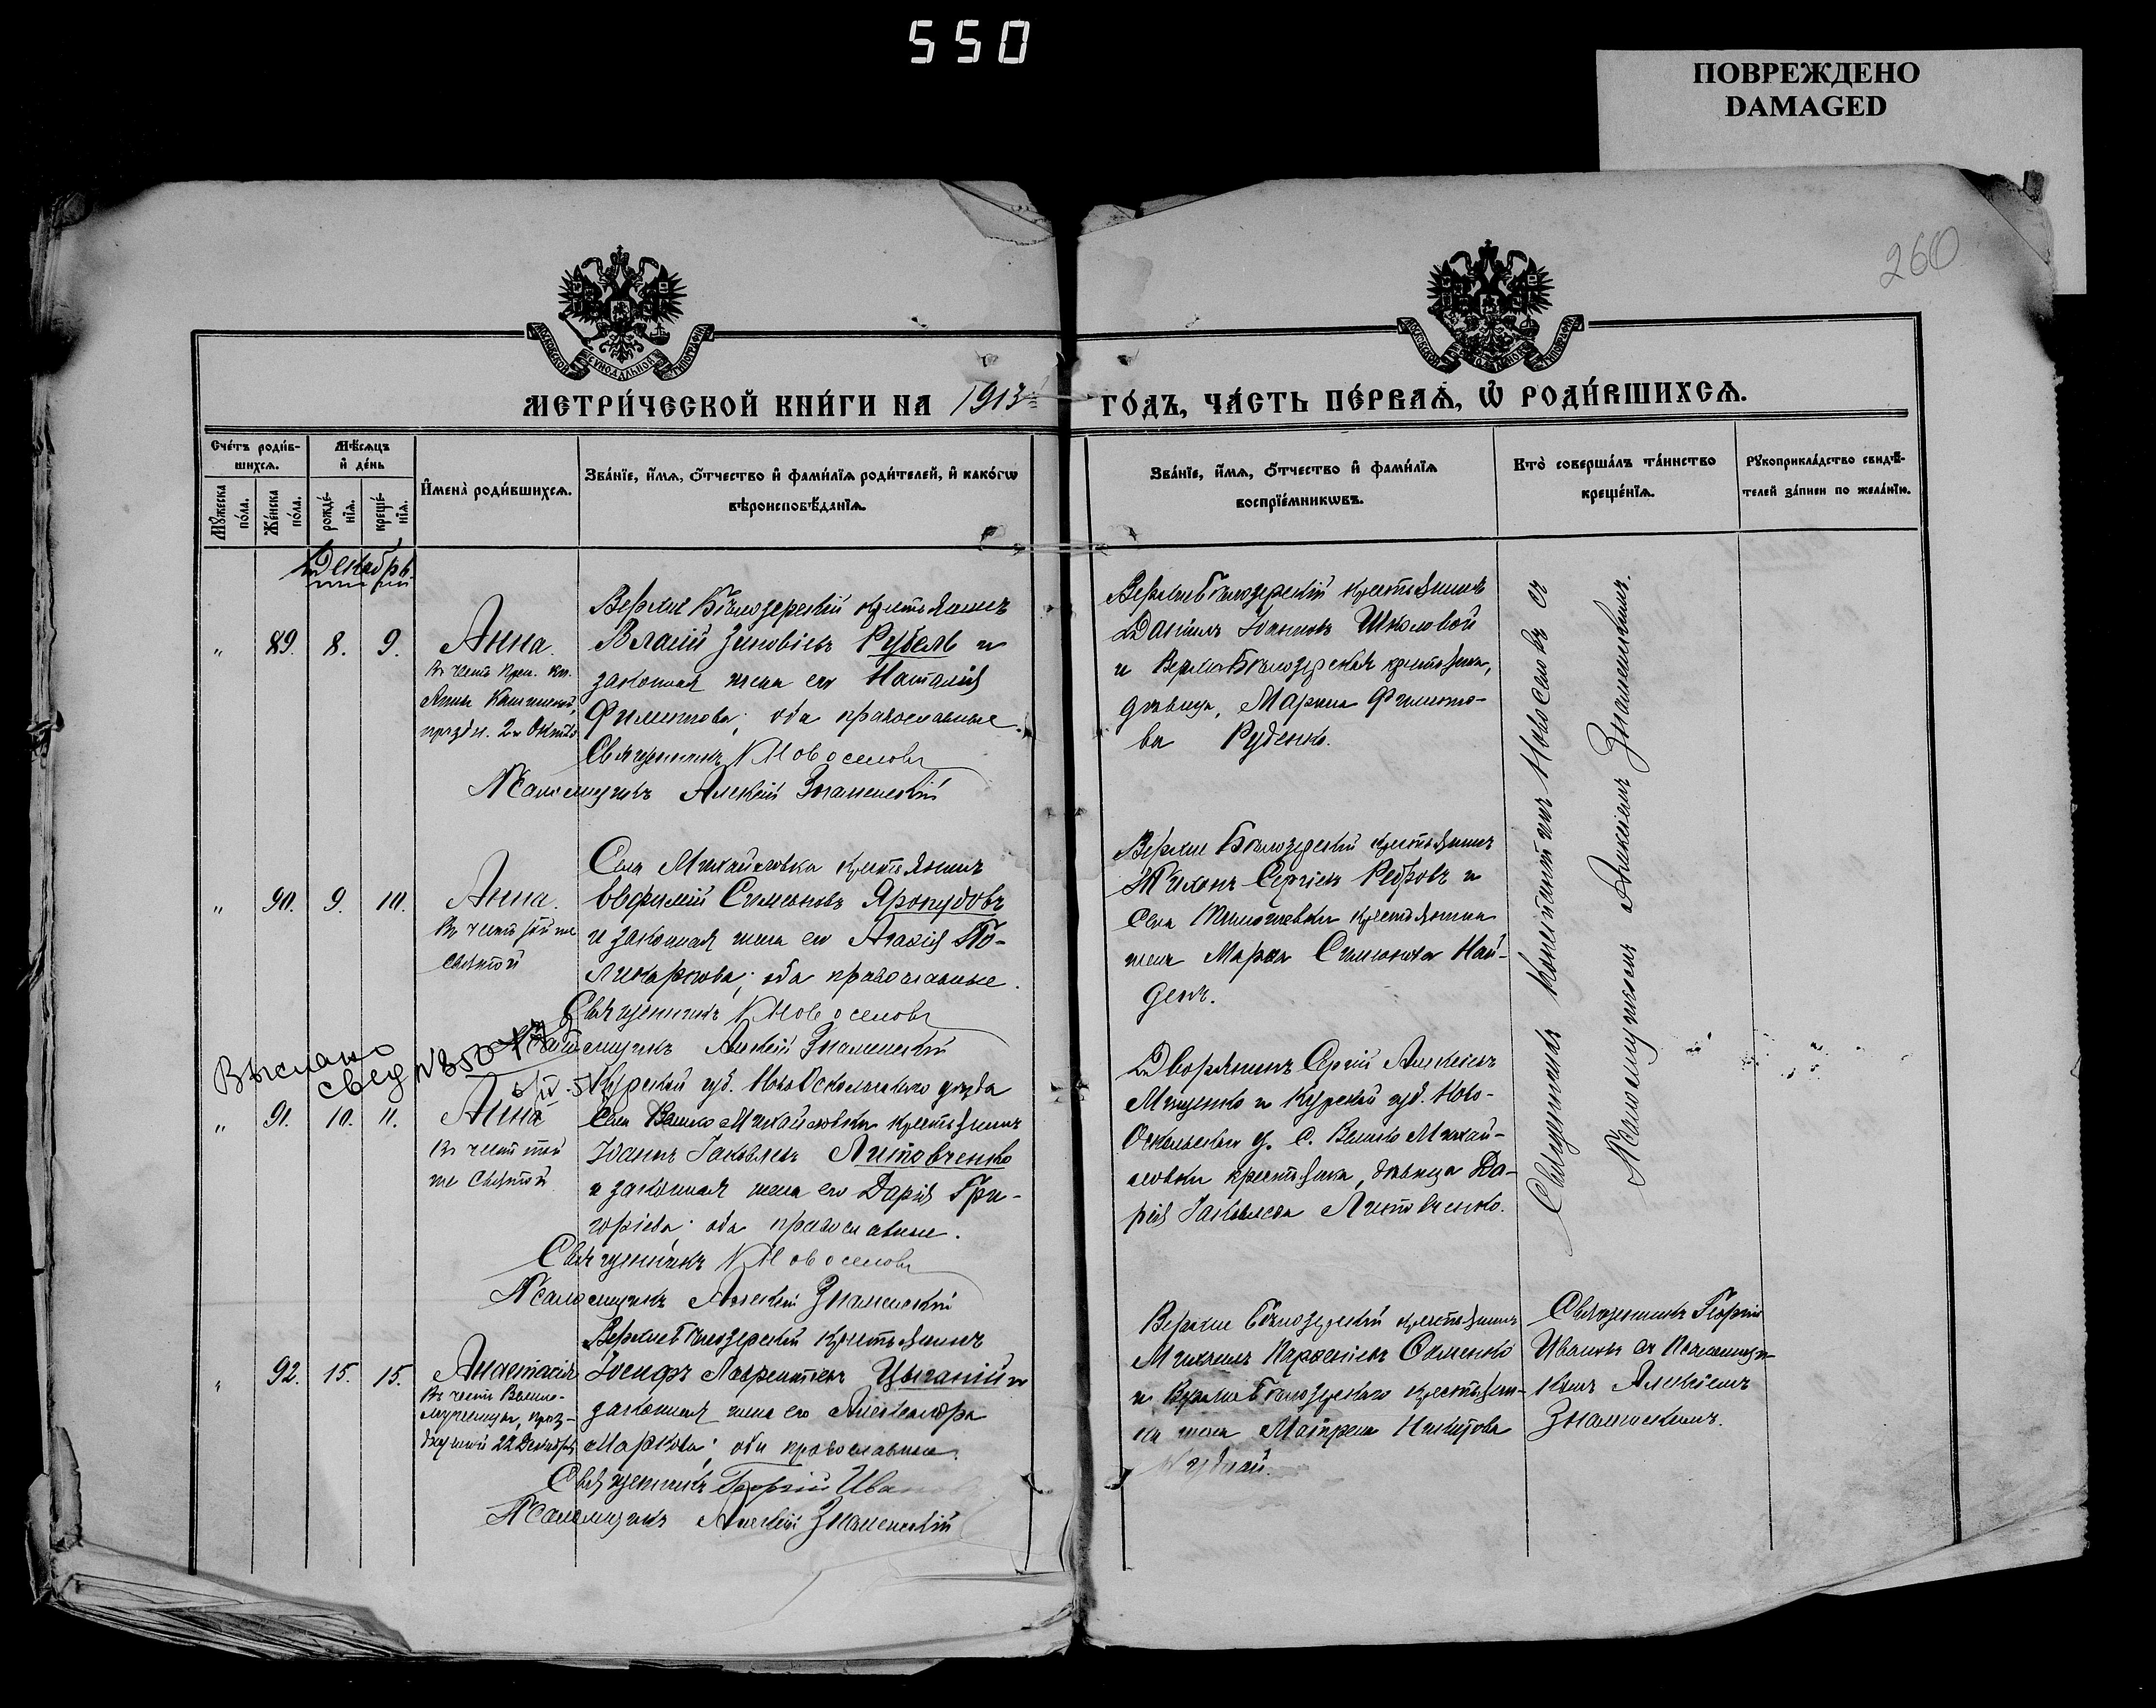 550
ПОВРЕЖДЕНО
DAMAGED
260
МОСКОВСКОЙ СѴНОДАЛЬНОЙ ТИПОГРАФІИ
МОСКОВСКОЙ СѴНОДАЛЬНОЙ ТИПОГРАФІИ
МЕТРИ́ЧЕСКОЙ КНИ́ГИ НА 1913 ГО́ДЪ, ЧА́СТЬ ПЕ́РВАѦ, Ѡ РОДИ́ВШИХСѦ.
Сче́тъ роди́в-
шихсѧ.
Мѣ́сѧцъ
и де́нь
Мꙋ́жеска по́ла.
Же́нска по́ла.
рожде́-
нїѧ.
креще́-
нїѧ.
И҆мена̀ роди́вшихсѧ.
Зва́нїе, и҆́мѧ, ѻ҆́тчество и҆ фами́лїѧ роди́телей, и҆ како́гѡ
вѣроисповѣ́данїѧ.
Зва́нїе, и҆́мѧ, ѻ҆́тчество и҆ фами́лїѧ
воспрїе́мникѡвъ.
Кто̀ соверша́лъ та́инство
креще́нїѧ.
Рꙋкоприкла́дство свидѣ́-
телей за́писи по жела́нїю.
Декабрь
" 89. 8. 9. Анна.
Въ честь Преп. Кн.
Анны Кашинской,
праздн. 2 Октяб
Верхне Бѣлозерскій крестьянинъ
Власій Зиновіевъ Рубель и
законная жена его Наталія
Филиппова; оба православные.
Священникъ К Новоселовъ
Псаломщикъ Алексій Знаменскій
Верхне Бѣлозерскій крестьянинъ
Даніилъ Іоанновъ Школовой
и Верхне Бѣлозерская крестьянка,
дѣвица, Марина Филиппо-
ва Руденко.
Священникъ Константинъ Новоселовъ съ
Псаломщикомъ Алексіемъ Знаменскимъ.
" 90. 9. 10. Анна.
Въ честь той же
святой
Села Михайловка крестьянинъ
Евфимій Симеоновъ Яропудовъ
и законная жена его Агафія По-
ликарпова; оба православные.
Священникъ К Новоселовъ
Псаломщикъ Алексій Знаменскій
Верхне Бѣлозерскій крестьянинъ
Тихонъ Сергіевъ Ребровъ и
села крестьянина
жена Марфа Симеонова Най-
денъ.
Выслано
свед №350
" 91. 10. 11. Анна
Въ честь той
же Святой
Курской губ. НовоОскольскаго уѣзда
Села Велико Михайловки крестьянинъ
Іоаннъ Іаковлевъ Литовченко
и законная жена его Дарія Гри-
горіева; оба православные.
Священникъ К Новоселовъ
Псаломщикъ Алексій Знаменскій
Дворянинъ Сергій Алексіевъ
Мищенко и Курской губ. Ново-
Оскольскаго у. с. Велико Михай-
ловки крестьянка, дѣвица Да-
рія Іаковлева Литовченко.
" 92. 15. 15. Анастасія
Въ честь Велико-
мученицы, праз-
днуемой 22 Декабря
Верхне Бѣлозерскій крестьянинъ
Іосифъ Лаврентіевъ Цыганій и
законная жена его Александра
Маркова; оба православные.
Священникъ Георгій Иванов
Псаломщикъ Алексій Знаменскій
Верхне Бѣлозерскій крестьянинъ
Михаилъ Сименко
и Верхне Бѣлозерскаго крестьяни-
на жена Матрена Никитова
Священникъ Георгій
Ивановъ съ Псаломщи-
комъ Алексіемъ
Знаменскимъ.